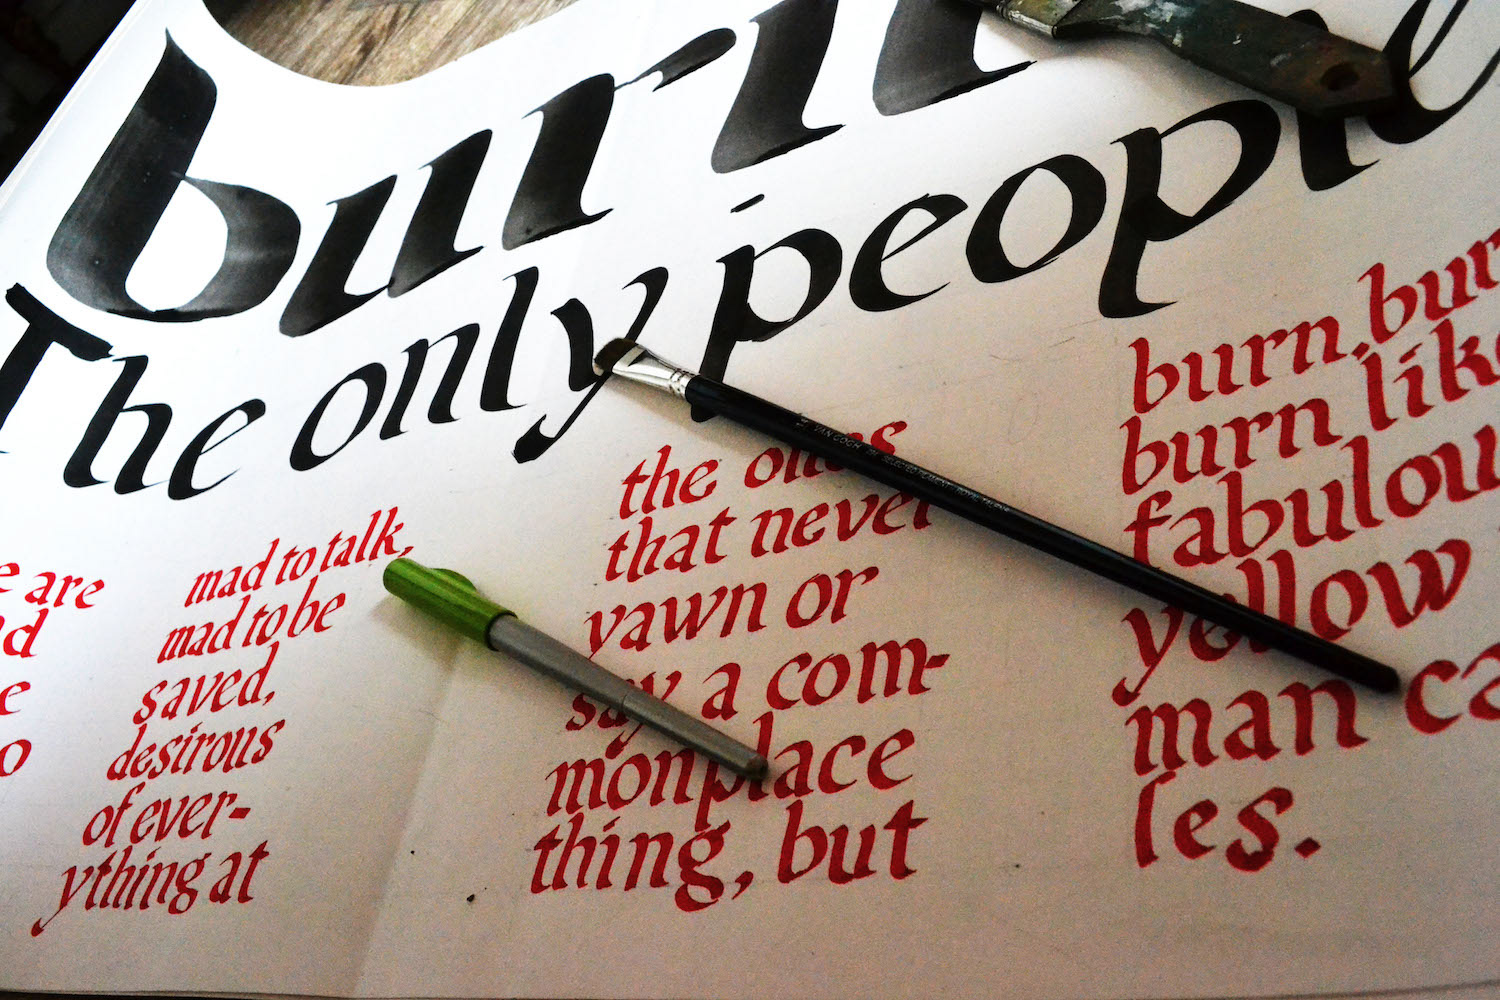 burn
The only people
are
mad to talk,
mad to be
saved,
desirous
of ever-
ything at
the ones
that never
yawn or
say a com-
monplace
thing, but
burn, bur
burn like
fabulou
yellow
man ca
les.
VAN GOGH SELECTED FILAMENT ROYAL TALENS